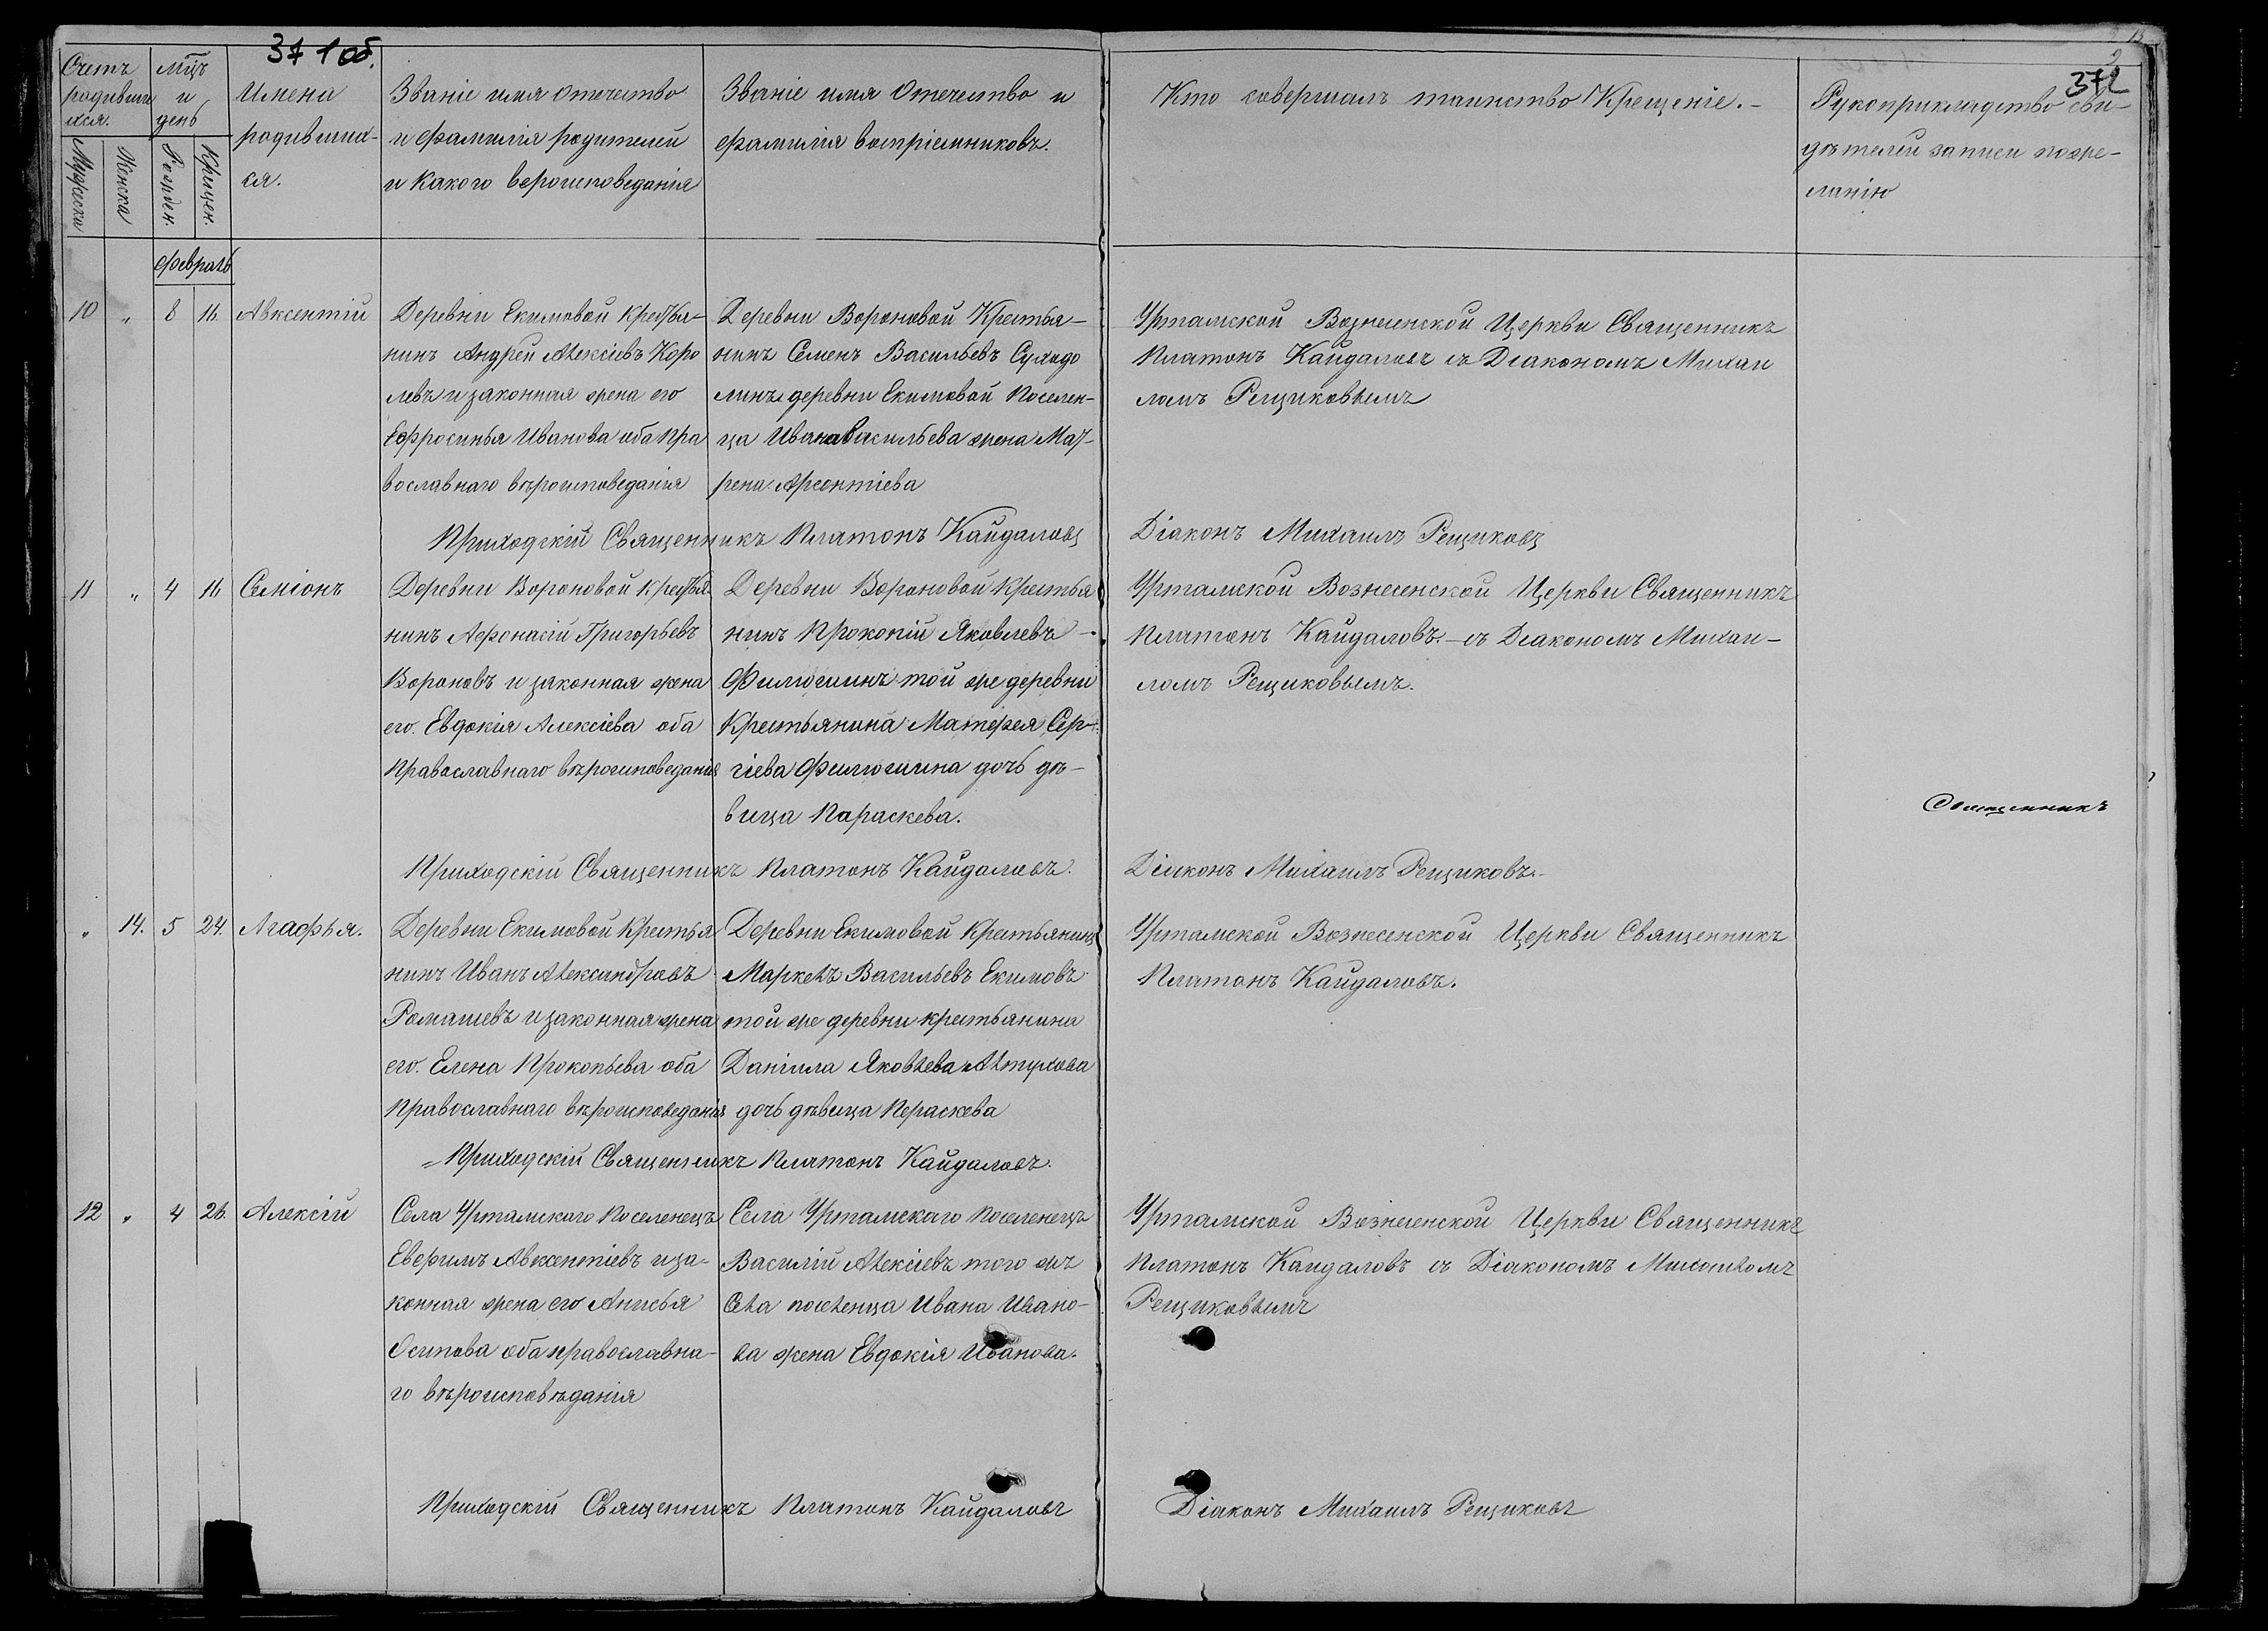 37 1 об.
372
Счетъ
родивших
ихся.
Мужеска
Женска
мцъ
и
день
Рожден.
Крещен.
Имена
родивших-
ся.
Званіе имя отчество
и фамилія родителей
и какого вероисповеданія
Званіе имя Отечество и
фамилія воспріемниковъ.
Кто совершалъ таинство Крещеніе.-
Рукоприкладство сви-
дѣтелей записи по же-
ланію
февраль
10 " 8 16. Авксентій
Деревни Екимовой крестья-
нинъ Андрей Алексіевъ Коро
левъ и законная жена его
Ефросинья Иванова оба пра
вославнаго вѣроисповеданія
Деревни Вороновой Крестья-
нинъ Семенъ Васильевъ Суходо
линъ деревни Екимовой Поселен-
ца Ивана Васильева жена Мат-
рена Арсентіева
Уртамской Вознесенской Церкви Священникъ
Платонъ Кайдаловъ съ Діакономъ Михаи
ломъ Рещиковымъ
Приходскій Священникъ Платонъ Кайдаловъ
Діаконъ Михаилъ Рещиковъ
11 " 4 16 Семіонъ
Деревни Вороновой крестья
нинъ Афонасій Григорьевъ
Вороновъ и законная жена
его. Евдокія Алексіева оба
православнаго вѣроисповеданія
Деревни Вороновой крестья
нинъ Прокопій Яковлевъ -
Филюшинъ той же деревни
Крестьянина Матфея Сер-
гіева Филюшина дочь дѣ-
вица Параскева.
Уртамской Вознесенской Церкви Священникъ
Платонъ Кайдаловъ.- съ Діакономъ Михаи-
ломъ Рещиковымъ.
Священникъ
Приходскій Священникъ Платонъ Кайдаловъ.
Діаконъ Михаилъ Рещиковъ.-
" 14. 5 24. Агафья.
Деревни Екимовой крестья
нинъ Иванъ Александровъ
Ромашевъ и законная жена
его. Елена Прокопьева оба
православнаго вѣроисповеданія
Деревни Екимовой Крестьянинъ
Маркелъ Васильевъ Екимовъ
той же деревни крестьянина
Даніила Яковлева Алтухова
дочь дѣвица Пераскева
Уртамской Вознесенской Церкви Священникъ
Платонъ Кайдаловъ.
Приходскій Священникъ Платонъ Кайдаловъ.
12 " 4 26. Алексій
Села Уртамского поселенецъ
Еверимъ Авксентіевъ и за-
конная жена его Анисья
Осипова оба православна-
го вѣроисповѣданія
Села Уртамскаго поселенецъ
Василій Алексіевъ того жъ
Села поселенца Ивана Ивано-
ва жена Евдокія Иванова.
Уртамской Вознесенской Церкви Священникъ
Платонъ Кайдаловъ съ Діакономъ Михаиломъ
Рещиковымъ
Приходскій Священникъ Платонъ Кайдаловъ
Діаконъ Михаилъ Рещиковъ